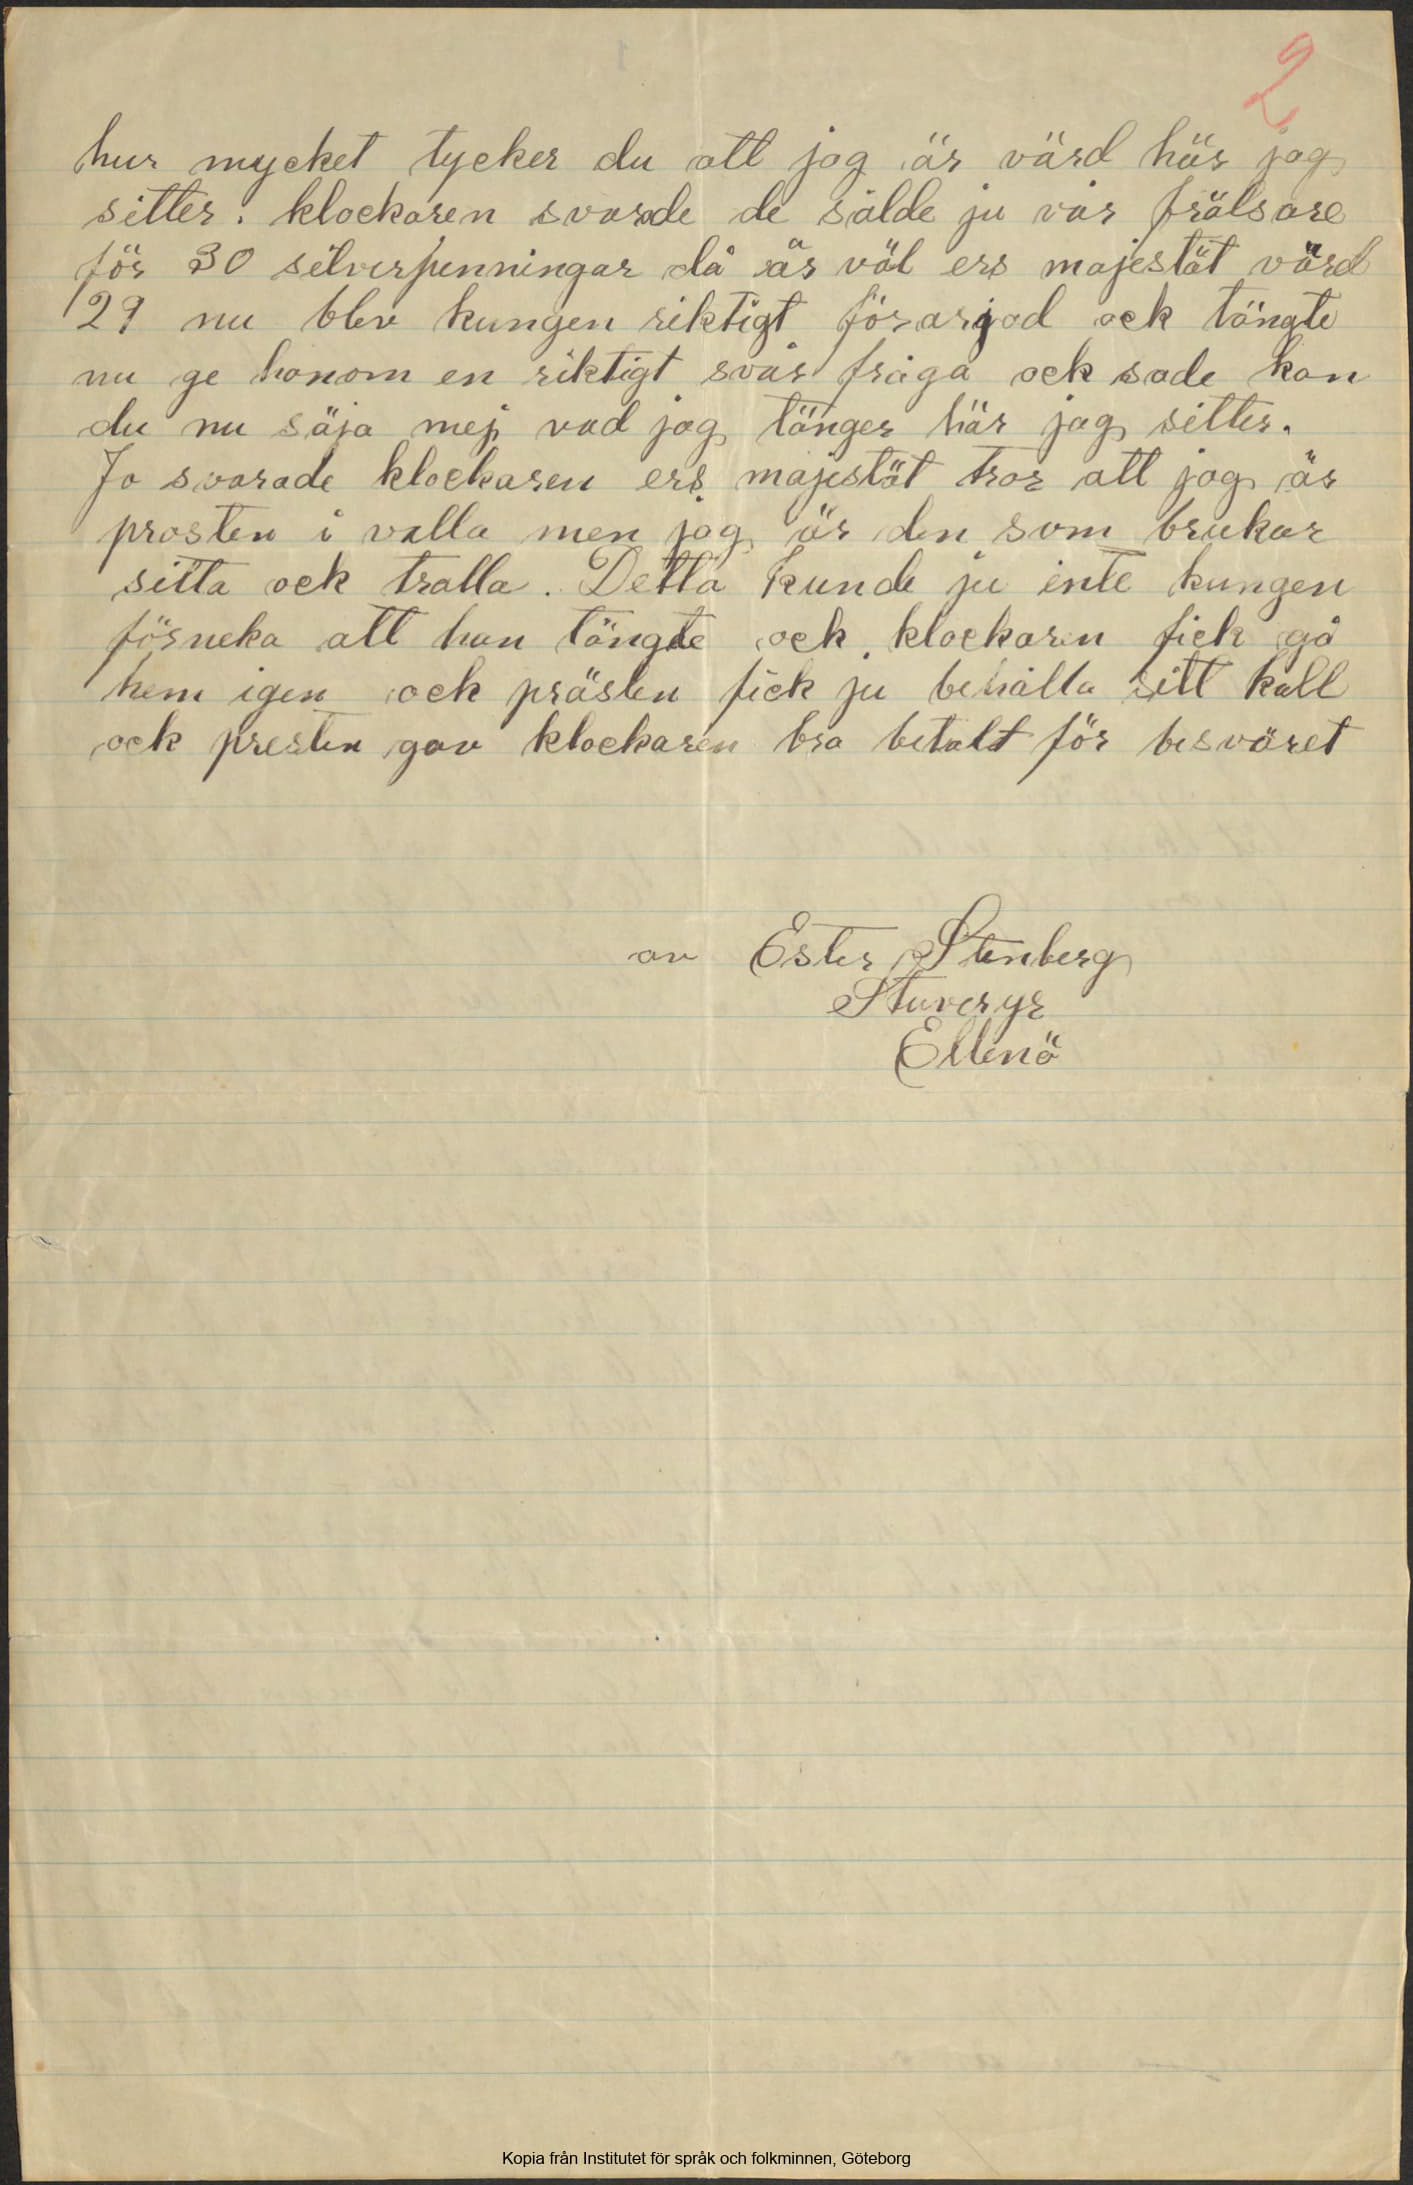 2
hur mycket tycker du att jag är värd här jag
sitter. klockaren svarade de sålde ju vår frälsare
för 30 silverpenningar då är väl ers majestät värd
29 nu blev kungen riktigt förargad ock tängte
nu ge honom en riktigt svår fråga ock sade kan
du nu säja mej vad jag tänger här jag sitter.
Jo svarade klockaren ers majestät tror att jag är
prosten i valla men jag är den som brukar
sitta ock tralla. Detta kunde ju inte kungen
förneka att han tängte ock klockaren fick gå
hem igen ock prästen fick ju behålla sitt kall
ock presten gav klockaren bra betalt för besväret
av Ester Stenberg
Stuveryr
Ellenö
Kopia från Institutet för språk och folkminnen, Göteborg